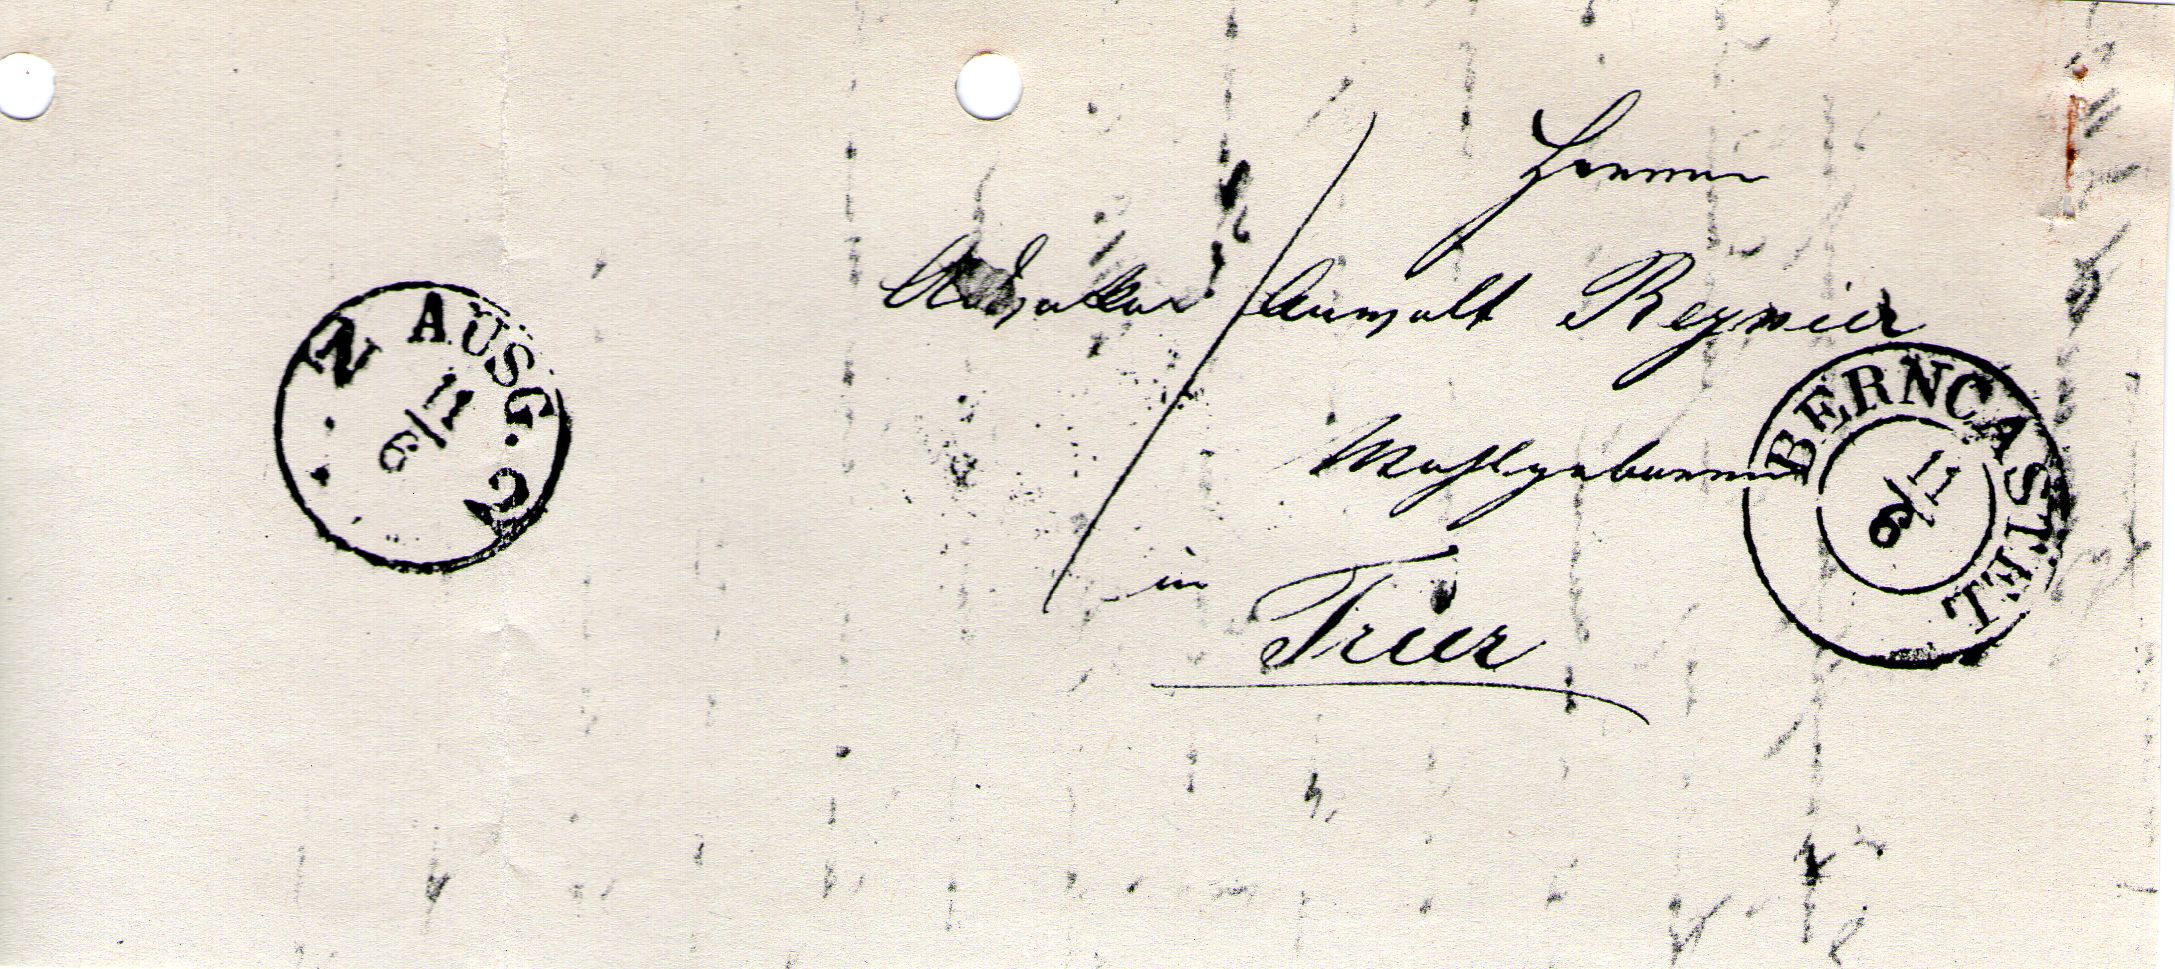 Herrn
Advokat Anwalt Reynier
Wohlgeboren
in
Trier
BERNCASTEL
11/6
N AUSG. C
11/6